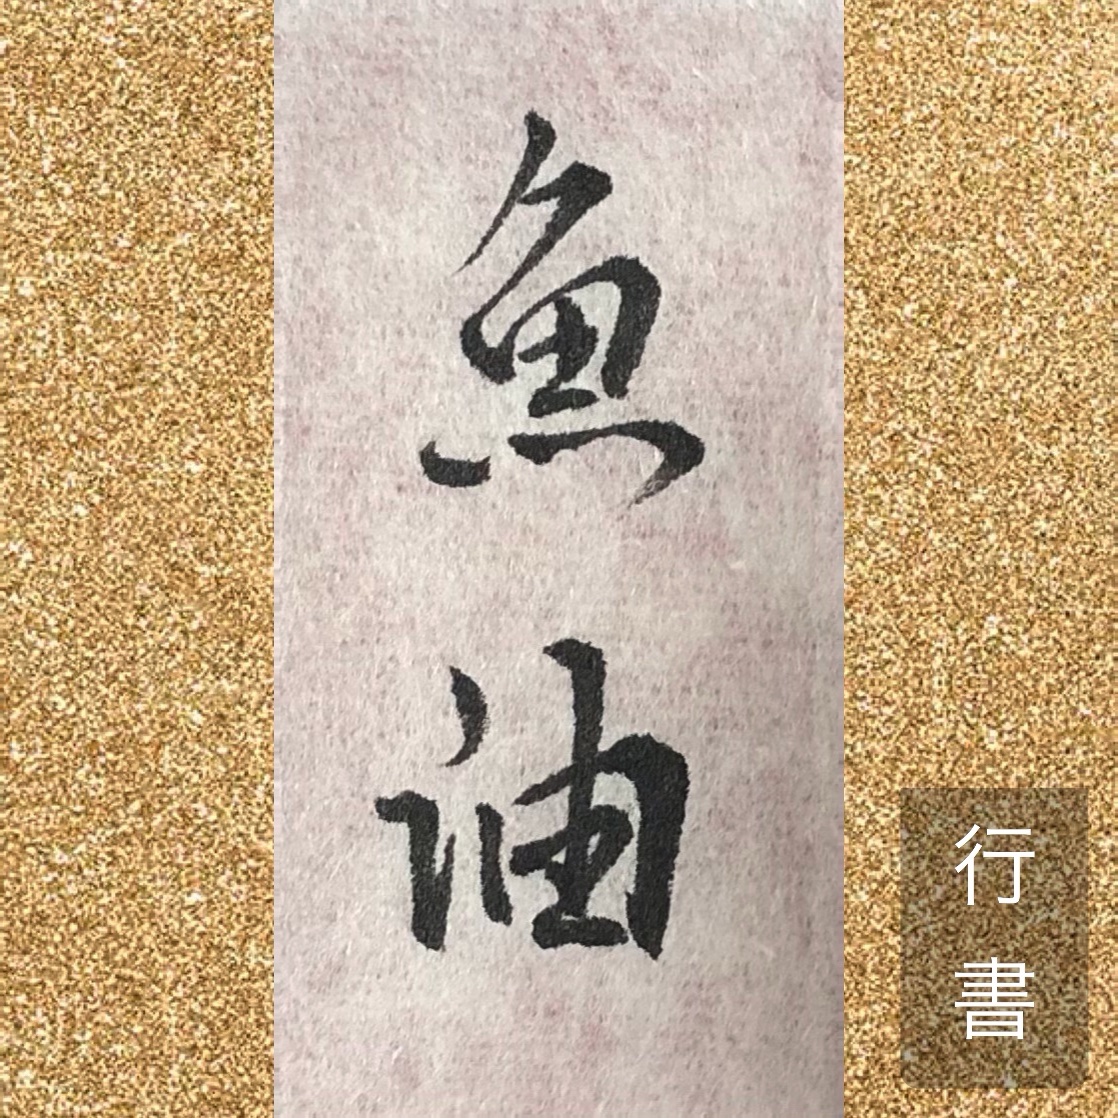 魚油
行書